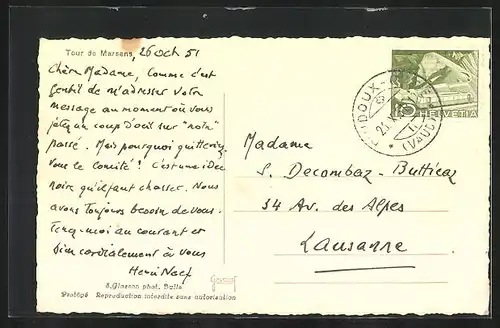 Tour de Marsens, 26 Oct 51
Chère Madame, Comme c'est
gentil de m'adresser votre
message au moment où vous
jetez un coup d'oeil sur "notre"
passé. Mais pourquoi quitteriez-
vous le Comité? C'est une idée
noire qu'il faut chasser. Nous
avons toujours besoin de vous.
Tenez-moi au courant et
bien cordialement à vous
Henri Naef
S. Glasson phot. Bulle
Protégé Reproduction interdite sans autorisation
HELVETIA
10
PUIDOUX-
(VAUD)
Madame
S. Decombaz-Butticaz
34 Av. des Alpes
Lausanne